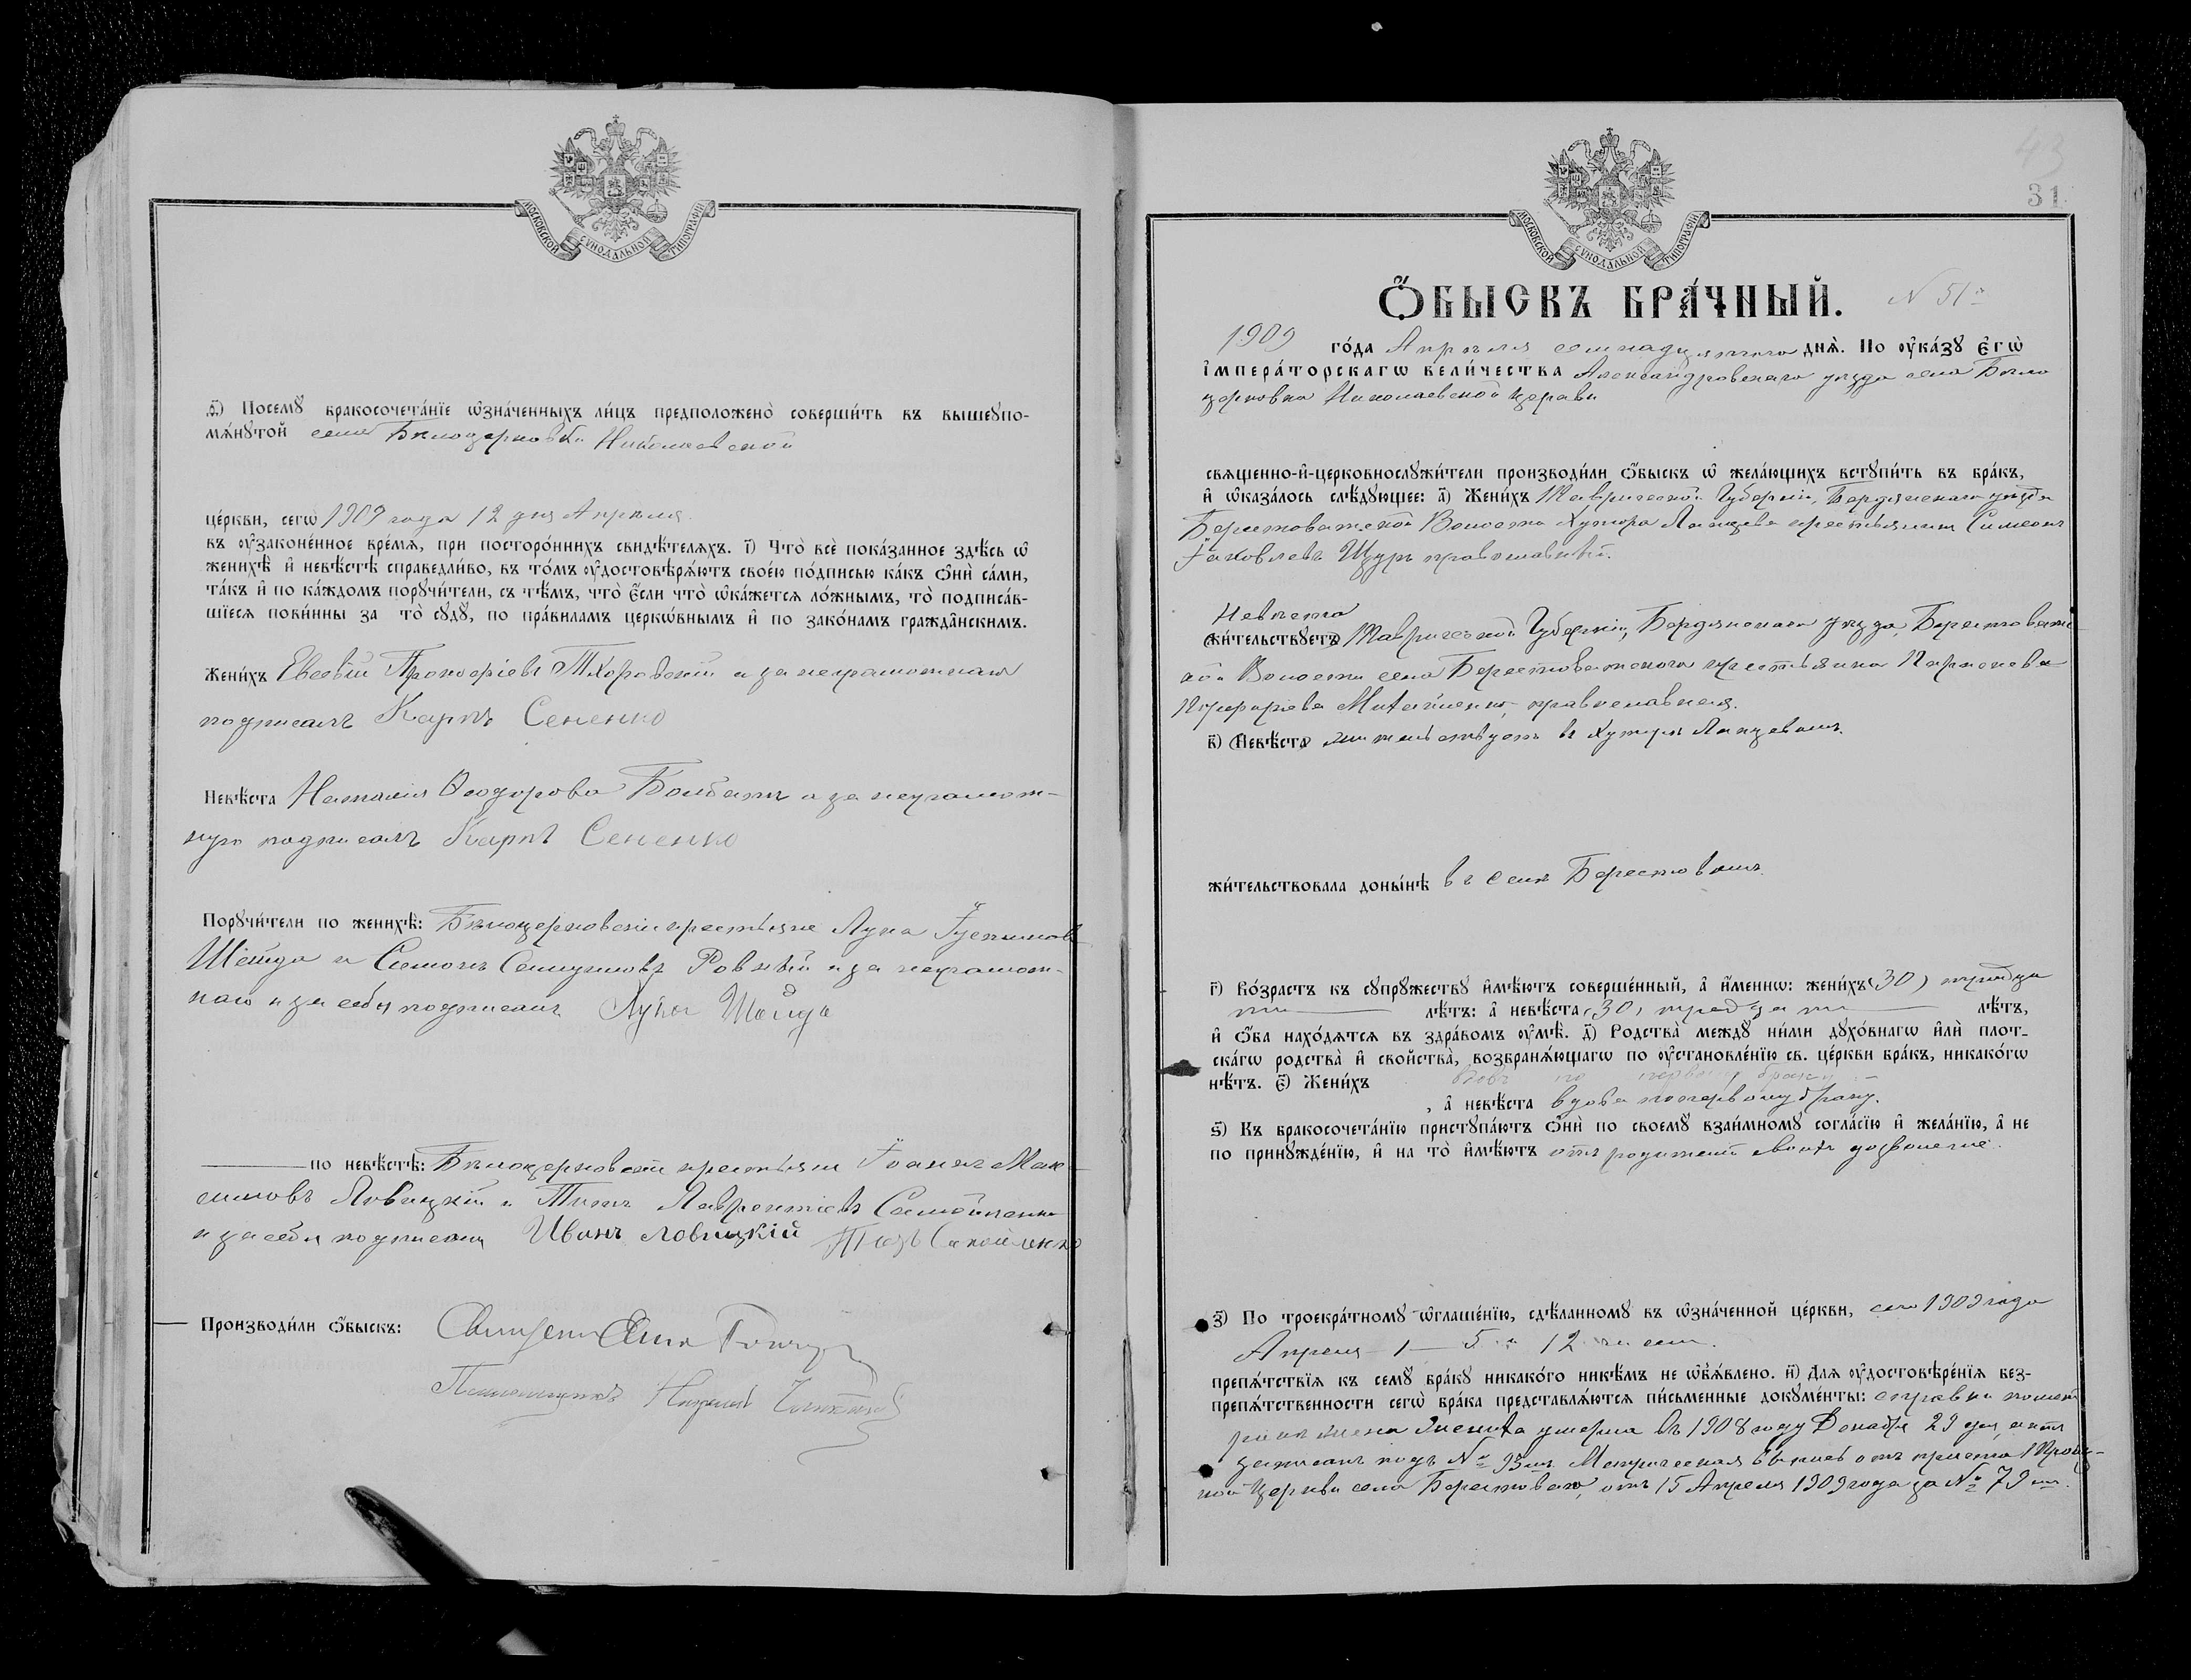 МОСКОВСКОЙ СѴНОДАЛЬНОЙ ТИПОГРАФІИ
д҃і) Посемꙋ̀ бракосочета́нїе ѡ҆зна́ченныхъ ли́цъ предположено̀ соверши́ть въ вышеꙋпо-
мѧ́нꙋтой села Бѣлоцерковки Николаевской
це́ркви, сегѡ̀ 1909 года 12 дня Апрѣля
въ ᲂу҆законе́нное вре́мѧ, при посторо́ннихъ свидѣ́телѧхъ. і҃) Что̀ всѐ пока́занное здѣ́сь ѡ҆
женихѣ̀ и҆ невѣ́стѣ справедли́во, въ то́мъ ᲂу҆достовѣрѧ́ютъ свое́ю по́дписью ка́къ ѻ҆нѝ са́ми,
та́къ и҆ по ка́ждомъ порꙋчи́тели, съ тѣ́мъ, что̀ є҆́сли что̀ ѡ҆ка́жетсѧ ло́жнымъ, то̀ подписа́в-
шїесѧ пови́нны за то̀ сꙋдꙋ̀, по пра́виламъ церко́внымъ и҆ по зако́намъ гражда̑нскимъ.
Жени́хъ Евсевій Прокофіевъ Тхоровскій а за неграмотнаго
подписалъ Карпъ Сененко
Невѣ́ста Наталія Ѳеодорова Болбатъ а за неграмот-
ную подписалъ Карпъ Сененко
Порꙋчи́тели по женихѣ̀: Бѣлоцерковскіи крестьяне Лука Іустиновъ
Шейда и Симонъ Ровный и за неграмот-
наго и за себя подписалъ Лука Шейда
по невѣ́стѣ: Бѣлоцерковскіи крестьяни Іоаннъ Мак-
симовъ Ловицкій и Титъ Лаврентіевъ Самойленко
и за себя подписали Иванъ Ловицкій Титъ Самойленко
Производи́ли ѻ҆́быскъ:
Псаломщикъ
МОСКОВСКОЙ СѴНОДАЛЬНОЙ ТИПОГРАФІИ
43
31
Ѻ҆́БЫСКЪ БРА́ЧНЫЙ. N 51й
1909 го́да Апрѣля семнадцятого днѧ̀. По ᲂу҆ка́зꙋ Є҆гѡ̀
І҆мпера́торскагѡ вели́чества Александровскаго уѣзда села Бѣло
церковка Николаевской Церкви
свѧщенно-и҆-церковнослꙋжи́тели производи́ли ѻ҆́быскъ ѡ҆ жела́ющихъ встꙋпи́ть въ бра́къ,
и҆ ѡ҆каза́лось слѣ́дꙋющее: а҃) Жени́хъ Таврической Губерніи, Бердянскаго уѣзда
Берестоватской Волости Хутора Ланцева крестьянинъ Симеонъ
Іаковлевъ Щуръ православный.
Невѣста
жи́тельствꙋетъ Таврической Губерніи, Бердянскаго уѣзда, Берестоватс
кой Волости села Берестоватского крестьянка
Михайленко, православная.
в҃) Невѣ́ста жительствуетъ въ Хуторѣ Ланцевомъ.
жи́тельствовала доны́нѣ въ селѣ Берестовомъ
г҃) Во́зрастъ къ сꙋпрꙋ́жествꙋ и҆мѣ́ютъ соверше́нный, а҆ и҆́меннѡ: жени́хъ (30) тридца
ти лѣ́тъ: а҆ невѣ́ста (30) тридцати лѣ́тъ,
и҆ ѻ҆́ба нахо́дѧтсѧ въ здра́вомъ ᲂу҆мѣ̀. д҃) Родства̀ междꙋ̀ ни́ми дꙋхо́внагѡ и҆лѝ плот-
ска́гѡ родства̀ и҆ свойства̀, возбранѧ́ющагѡ по ᲂу҆становле́нїю св. це́ркви бра́къ, никако́гѡ
нѣ́тъ. є҃) Жени́хъ вдовъ по первому браку
, а҆ невѣ́ста вдова по первому браку.
ѕ҃) Къ бракосочета́нїю пристꙋпа́ютъ ѻ҆нѝ по своемꙋ̀ взаи́мномꙋ согла́сїю и҆ жела́нїю, а҆ не
по принꙋжде́нїю, и҆ на то̀ и҆мѣ́ютъ отъ родителей своихъ дозволеніе.
з҃) По троекра́тномꙋ ѡ҆глаше́нїю, сдѣ́ланномꙋ въ ѡ҆зна́ченной це́ркви, сего 1909 года
Апреля 1 — 5 и 12 чисел.
препѧ́тствїѧ къ семꙋ̀ бра́кꙋ никако́го никѣ́мъ не ѡ҆б̾ѧ́влено. и҃) Длѧ ᲂу҆достовѣре́нїѧ без-
препѧ́тственности сегѡ̀ бра́ка представлѧ́ютсѧ пи́сьменные докꙋме́нты: справки
жена Жениха умерла въ 1908 году Декабря 29 дня, актъ
записанъ подъ № 93мъ. Метрическая выпись отъ причта
ной Церкви села Берестоваго, отъ 15 Апреля 1909 года за № 79мъ.